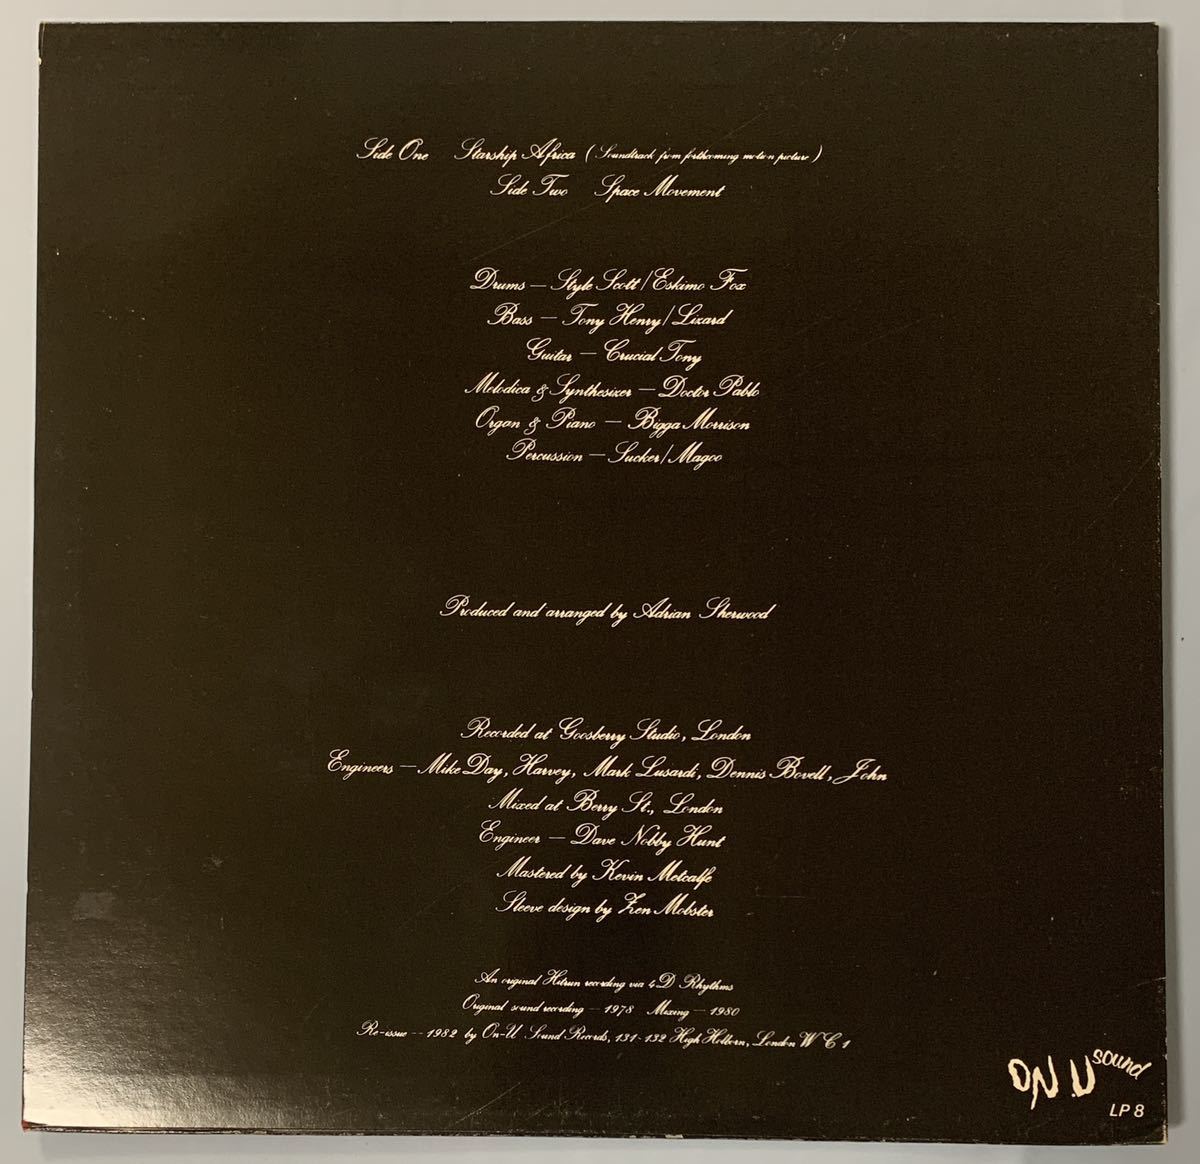 Side One Starship Africa (Soundtrack from forthcoming motion picture)
Side Two Space Movement
Drums — Style Scott/Eskimo Fox
Bass — Tony Henry/Lizard
Guitar — Crucial Tony
Melodica & Synthesizer — Doctor Pablo
Organ & Piano — Bigga Morrison
Percussion — Sucker/Magoo
Produced and arranged by Adrian Sherwood
Recorded at Goosberry Studio, London
Engineers — Mike Day, Harvey, Mark Lusardi, Dennis Bovell, John
Mixed at Berry St., London
Engineer — Dave Nobby Hunt
Mastered by Kevin Metcalfe
Sleeve design by Zen Mobster
An original Hitrun recording via 4D Rhythms
Original sound recording — 1978 Mixing — 1980
Re-issue — 1982 by On-U Sound Records, 131-132 High Holborn, London WC1
ON.U sound
LP 8